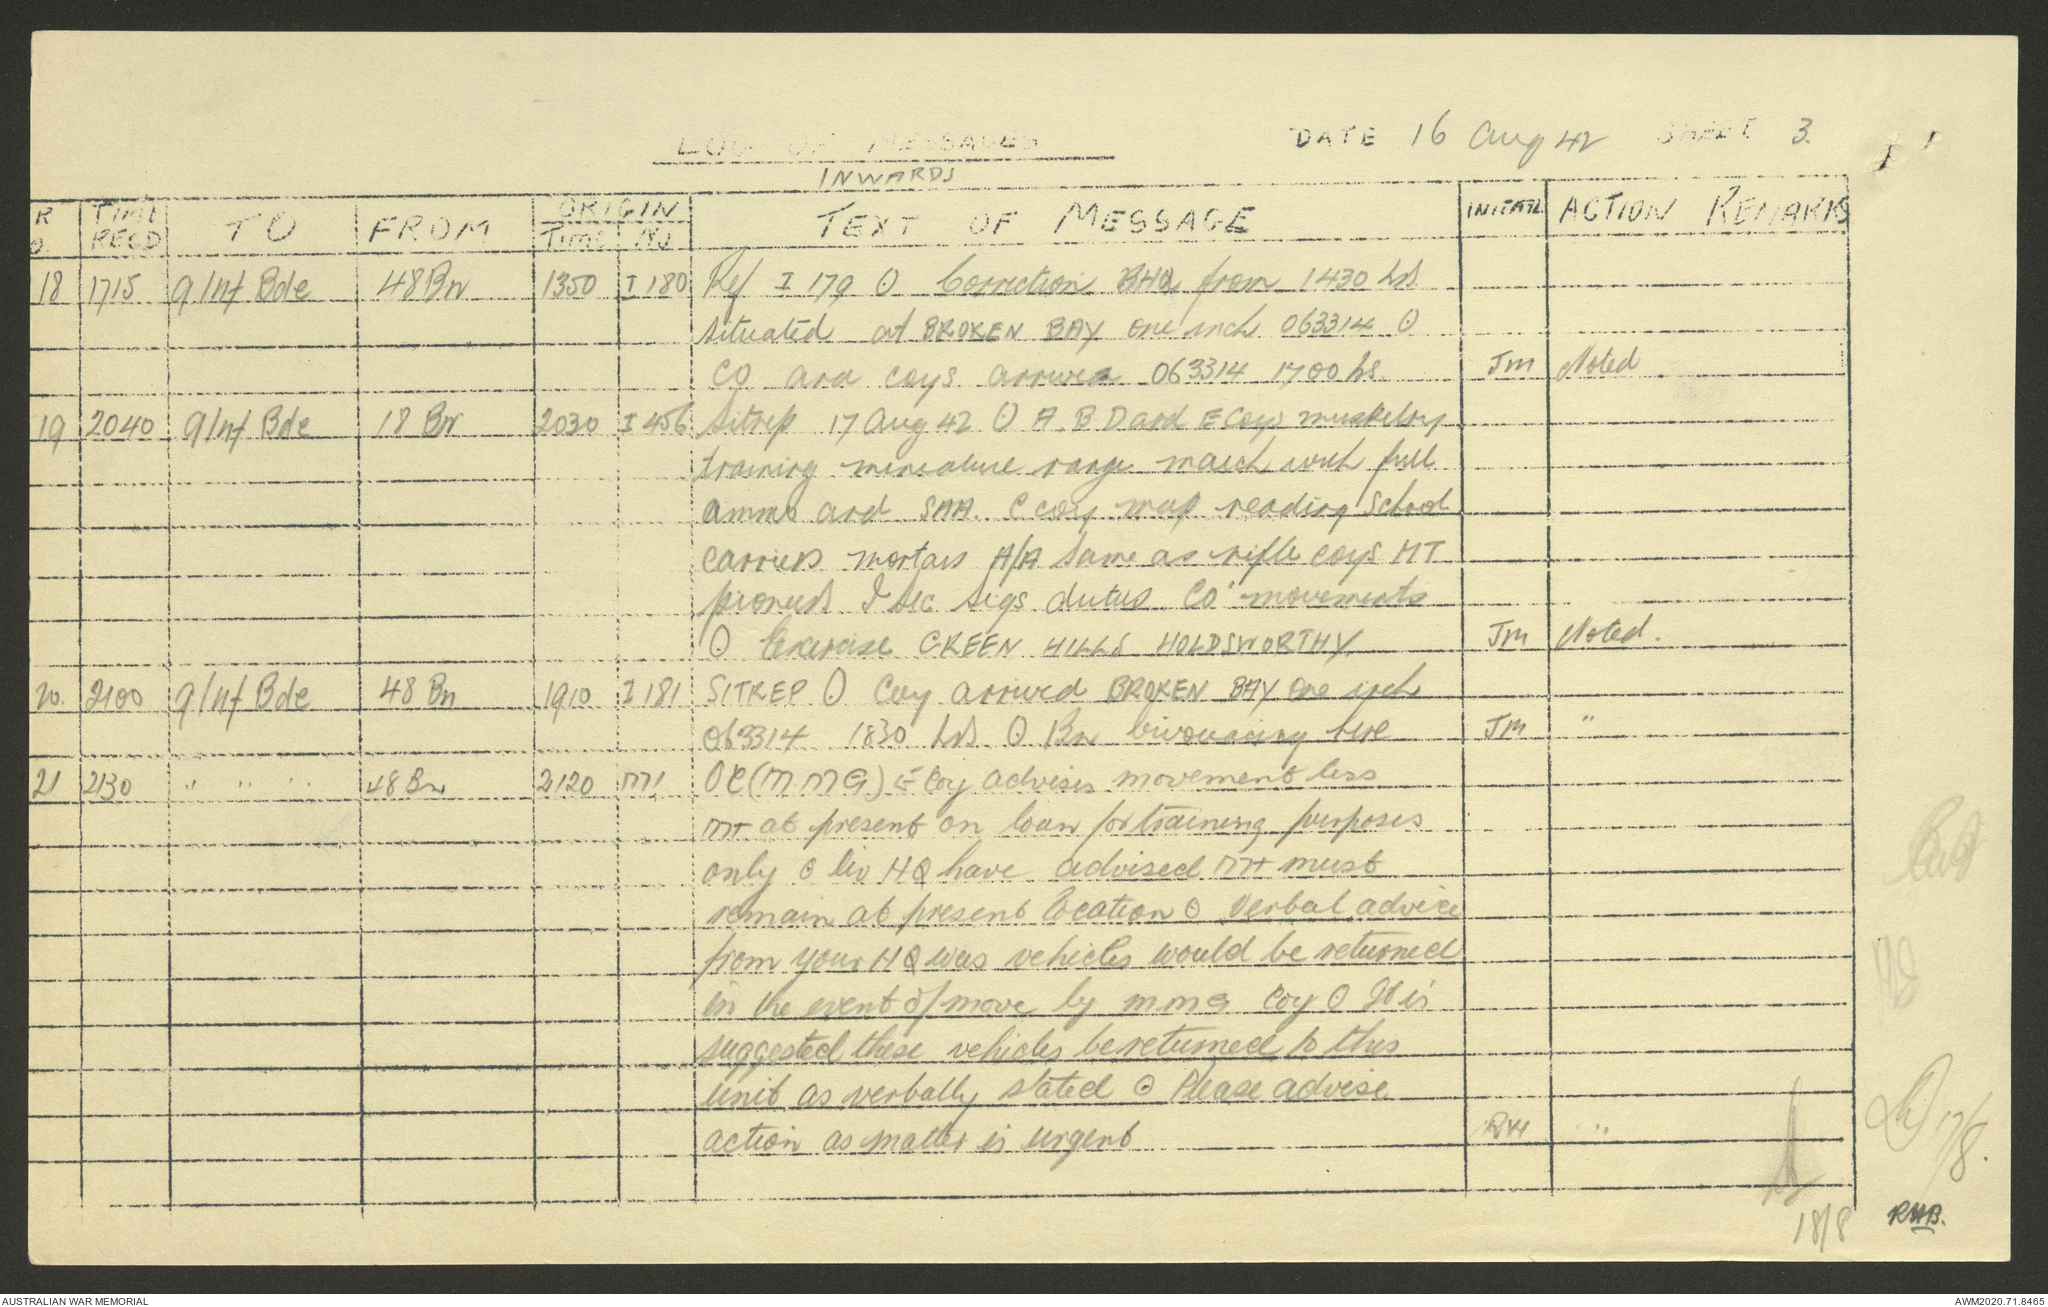 LOG OF MESSAGES DATE 16 Aug 42 SHEET 3.
INWARDS
R TIME RECD TO FROM ORIGIN TIME NO TEXT OF MESSAGE INITIAL ACTION REMARKS
18 1715 9 Inf Bde 48 Bn 1350 I 180 Ref I 179 ⊙ Correction BHQ from 1430 hrs
situated at BROKEN BAY one inch 063314 ⊙
CO and coys arrived 063314 1700 hs. JM Noted
19 2040 9 Inf Bde 18 Bn 2030 I 456 Sitrep 17 Aug 42 ⊙ A.B D and E Coys musketry
training miniature range march with full
ammo and SAA. C coy map reading School
carriers mortars A/A same as rifle coys MT
pioneers I sec sigs duties Co' movements
⊙ Exercise GREEN HILLS HOLDSWORTHY JM Noted.
20. 2100 9 Inf Bde 48 Bn 1910 I 181 SITREP ⊙ Coy arrived BROKEN BAY one inch
063314 1830 hrs ⊙ Bn bivouacing here JM "
21 2130 " " " 48 Bn 2120 M1 OC (M MG) E Coy advises movement less
MT at present on loan for training purposes
only ⊙ Div HQ have advised MT must
remain at present location ⊙ Verbal advice
from your HQ was vehicles would be returned
in the event of move by M.M.G Coy ⊙ It is
suggested these vehicles be returned to this
unit as verbally stated ⊙ Please advise
action as matter is urgent RH "
17/8.
18/8 RHB.
AUSTRALIAN WAR MEMORIAL AWM2020.71.8465